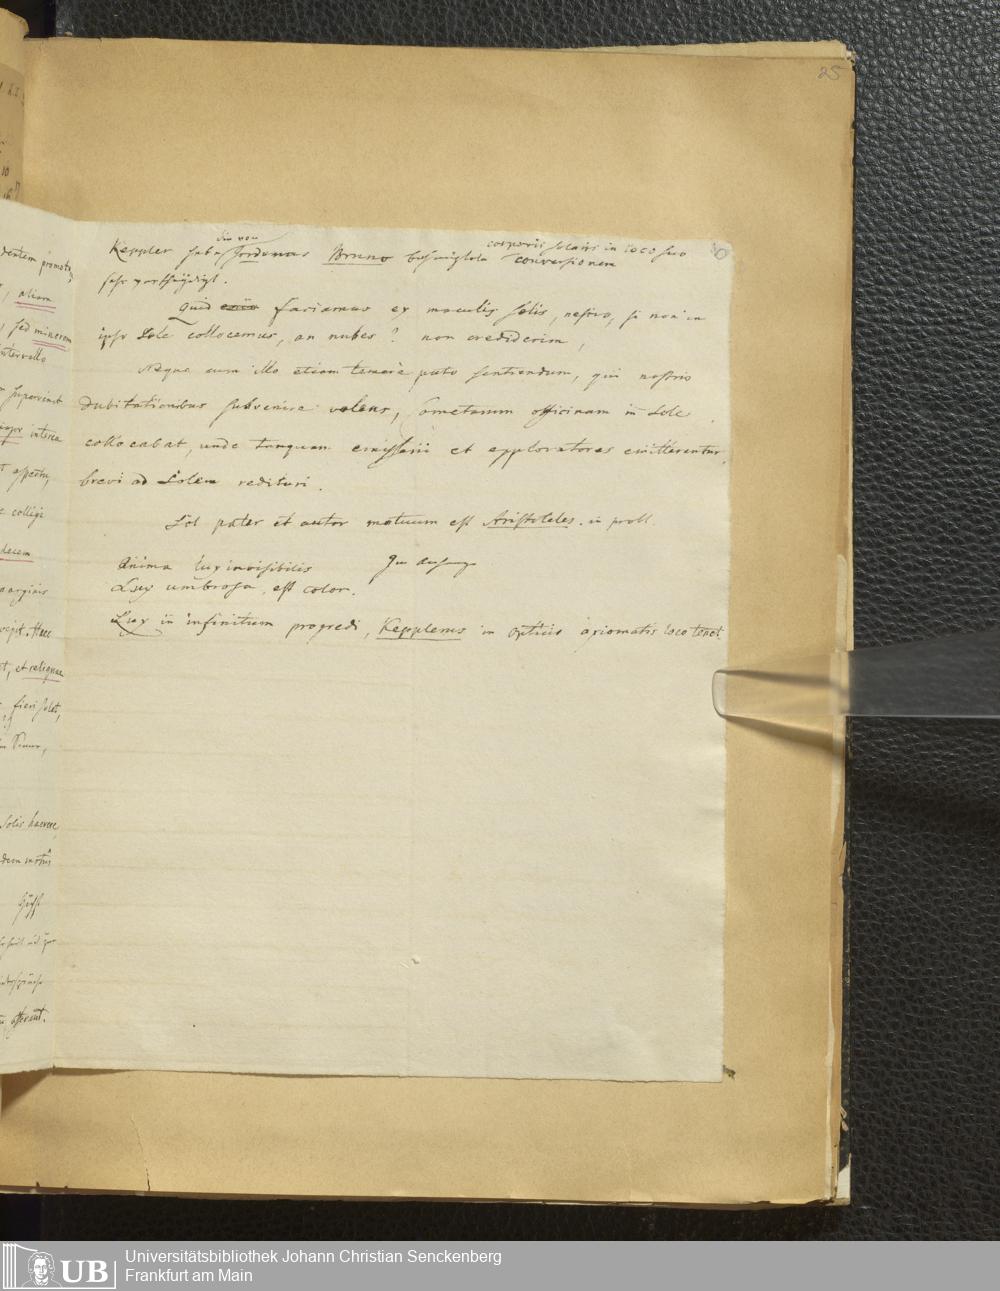 25
die von
corporis solaris in loco suo
Keppler habe Jordanus Bruno behauptete conversionem
sehr vertheidigt.
Quid enim faciamus ex maculis solis, nescio, si non in
ipso Sole collocemus, an nubes? non crediderim,
Neque cum illo etiam temere puto sentiendum, qui nostris
dubitationibus subvenire volens, Cometarum officinam in Sole
collocabat, unde tanquam emissarii et exploratores emitterentur,
brevi ad Solem redituri.
Sol pater et autor motuum est Aristoteles. in probl.
Anima lux invisibilis
Lux umbrosa, est color.
Lux in infinitum progredi, Kepplerus in opticis axiomatis loco tenet.
dentem promota,
, aliam
, sed minorem
intervallo
supervenit
major interea
aspectu
colligi
decem
marginis
Haec
et, et reliquae
fieri solet,
Solis haerere,
dem motus
afferunt.
UB
Universitätsbibliothek Johann Christian Senckenberg
Frankfurt am Main